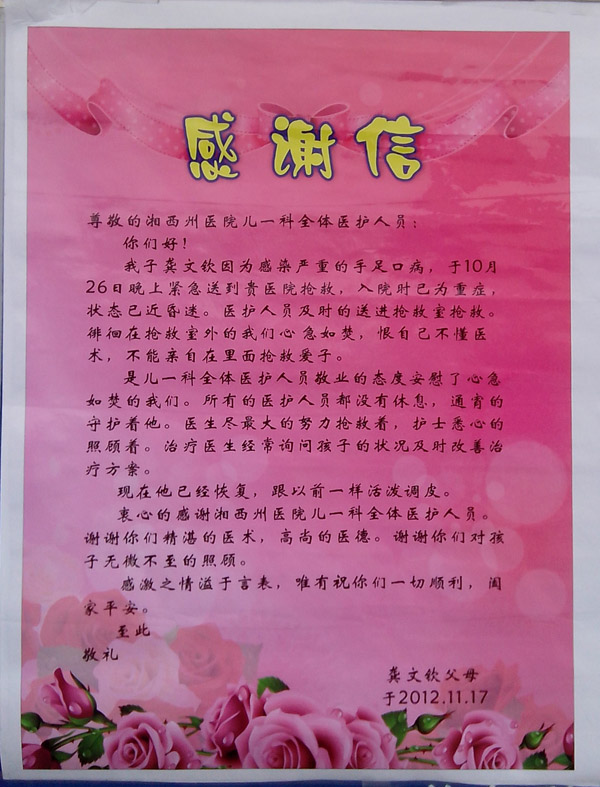 感谢信
尊敬的湘西州医院儿一科全体医护人员：
你们好！
我子龚文钦因为感染严重的手足口病，于10月
26日晚上紧急送到贵医院抢救，入院时已为重症，
状态已近昏迷。医护人员及时的送进抢救室抢救。
徘徊在抢救室外的我们心急如焚，恨自己不懂医
术，不能亲自在里面抢救爱子。
是儿一科全体医护人员敬业的态度安慰了心急
如焚的我们。所有的医护人员都没有休息，通宵的
守护着他。医生尽最大的努力抢救着，护士悉心的
照顾着。治疗医生经常询问孩子的状况及时改善治
疗方案。
现在他已经恢复，跟以前一样活泼调皮。
衷心的感谢湘西州医院儿一科全体医护人员。
谢谢你们精湛的医术，高尚的医德。谢谢你们对孩
子无微不至的照顾。
感激之情溢于言表，唯有祝你们一切顺利，阖
家平安。
至此
敬礼
龚文钦父母
于2012.11.17